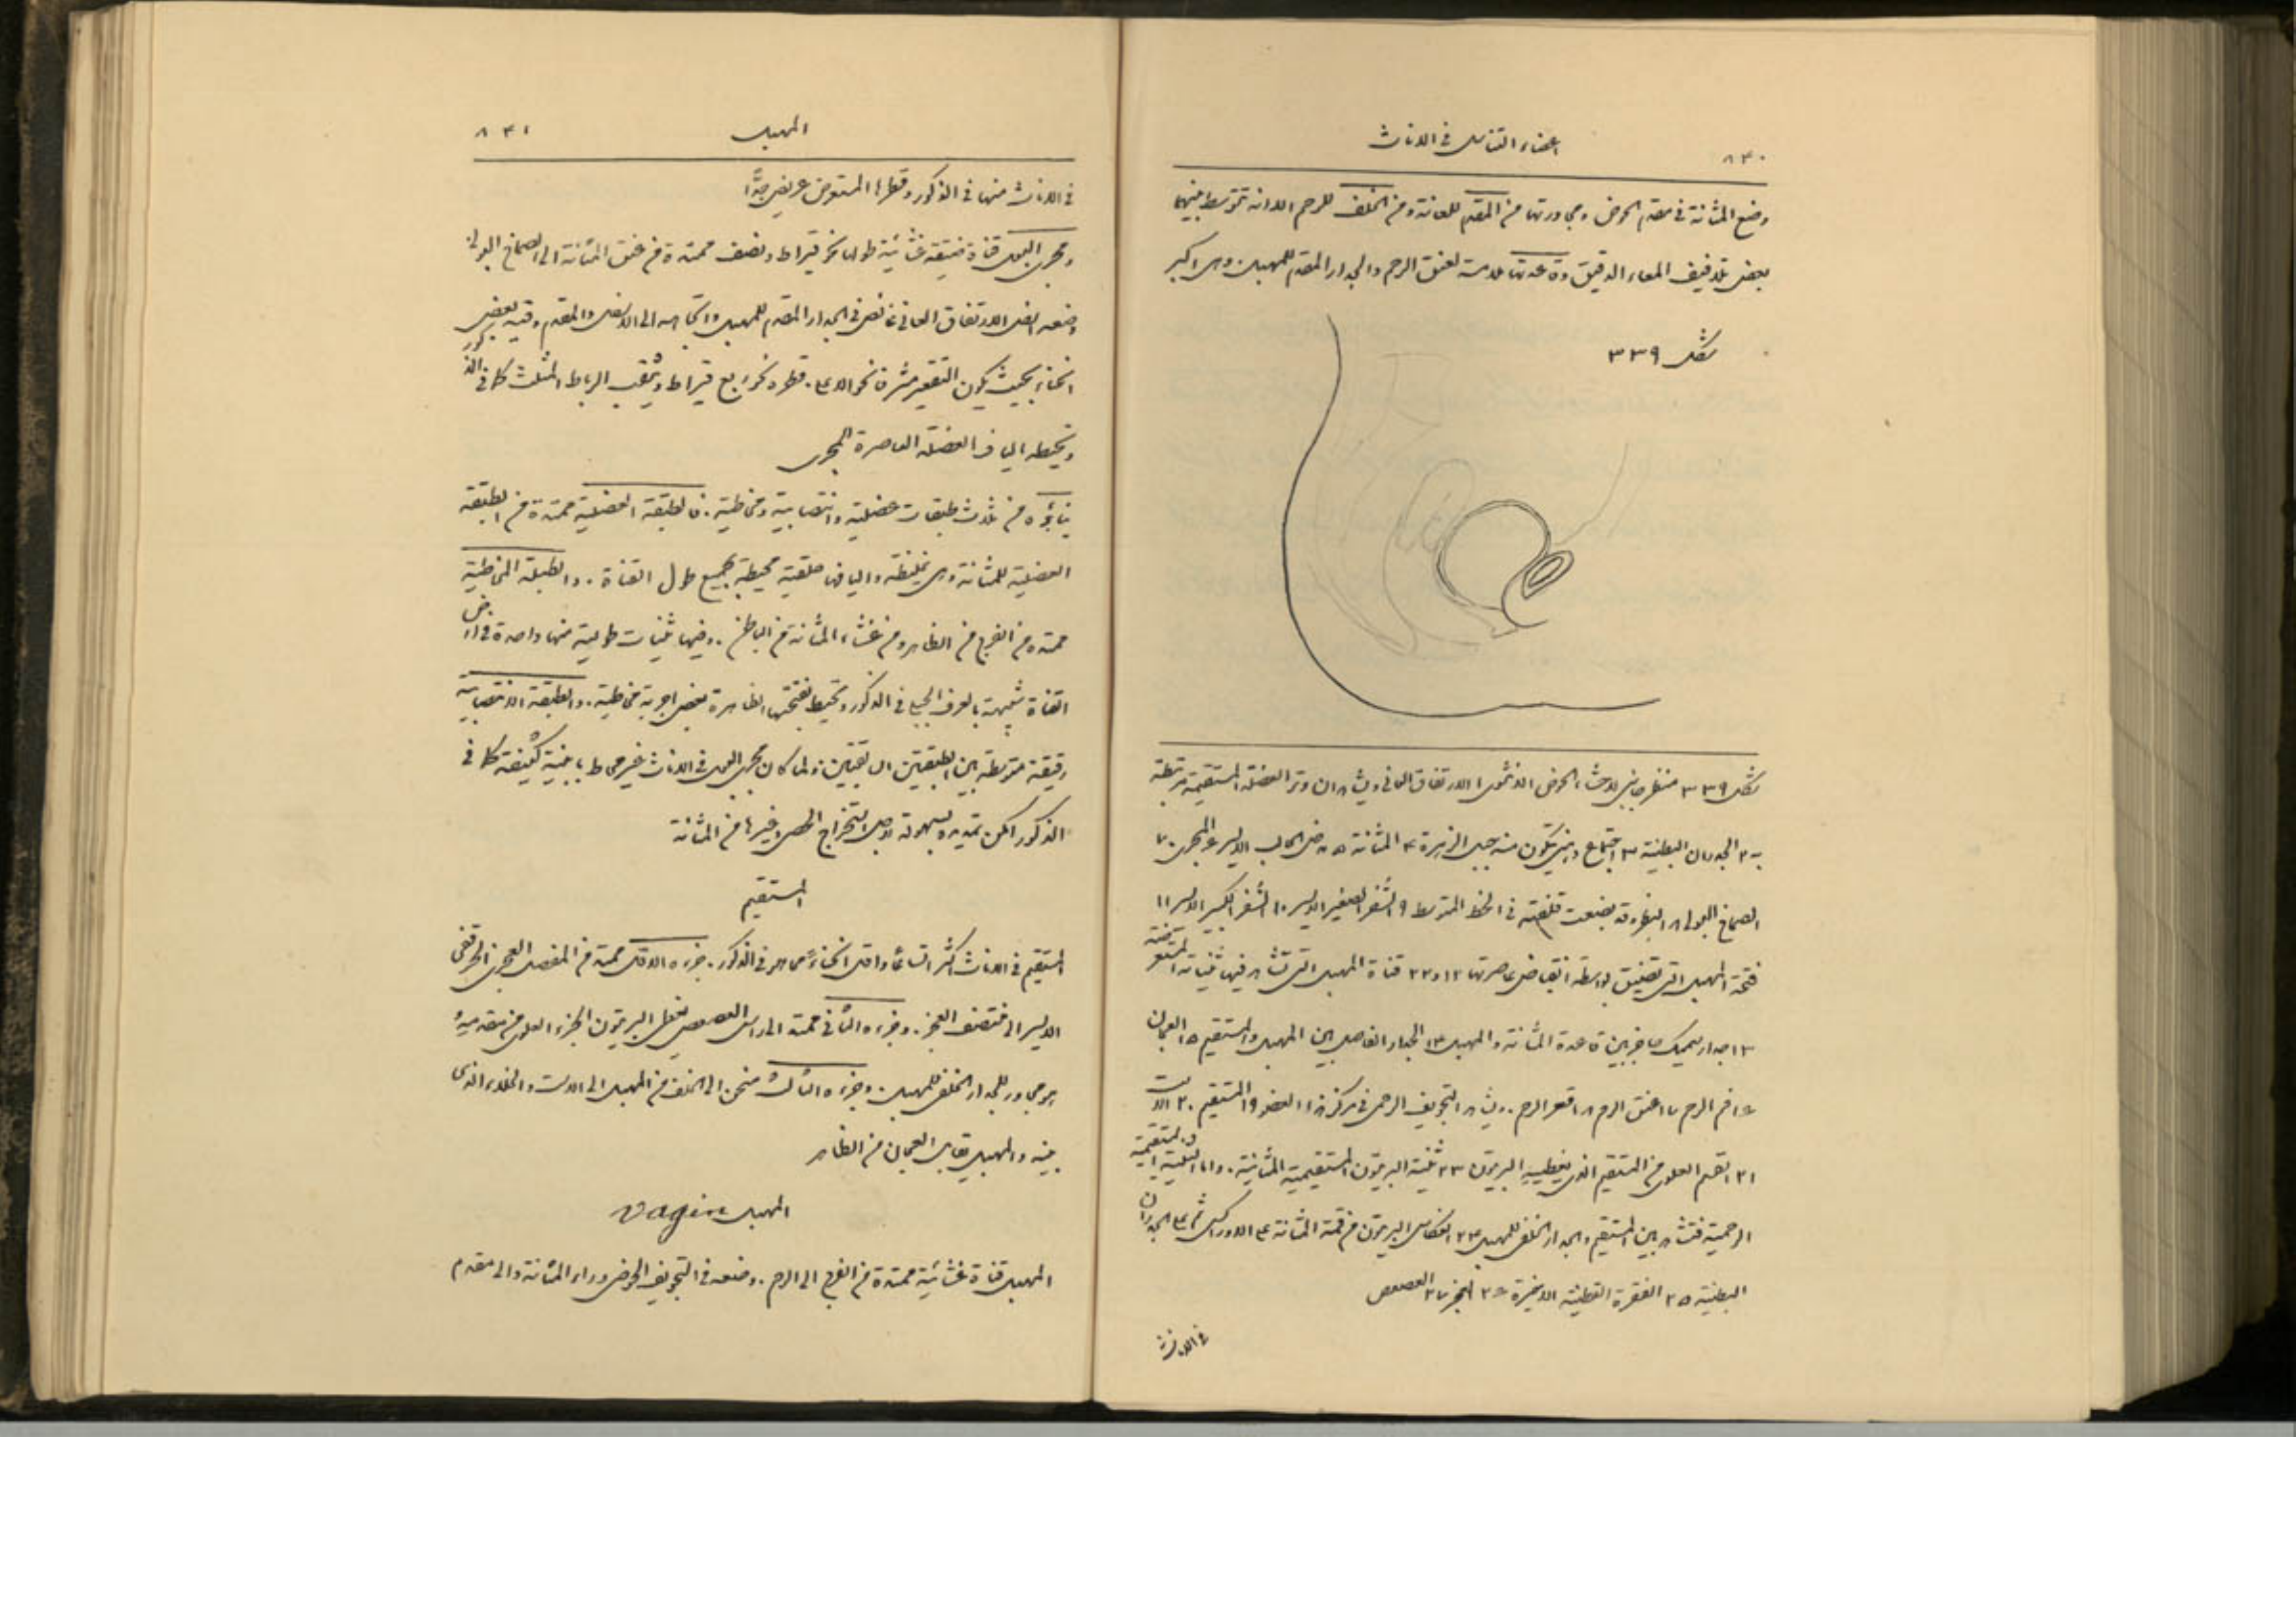 ٨٣٠ اعضاء التناسل فى الاناث
وضع المثانة فى مقدم الحوض ومجاورتها من المقدم للعانة ومن الخلف للرحم الا انه تتوسط بينهما
بعض تلافيف المعاء الدقيق وقاعدتها ملامسة لعنق الرحم والجدار المقدم للمهبل وهى اكبر
شكل ٣٣٩
شكل ٣٣٩ منظر جانبى لاحشاء الحوض الانثوى ١ الارتفاق العانى ويشاهد ان وتر العضلة المستقيمة مرتبطة
به ٢ الجدران البطنية ٣ اجتماع دهنى يتكون منه جبل الزهرة ٤ المثانة ٥ مدخل الحالب الايسر ٦ المجرى ٧
الصماخ البولى ٨ البظر وقلفته فى الخط المتوسط ٩ الشفر الصغير الايسر ١٠ الشفر الكبير الايسر ١١
فتحة المهبل التى تضيق بواسطة انقباض عاصرتها ١٢ و٢٢ قناة المهبل التى تشاهد فيها ثنياته المستعرضة
١٣ جدار سميك حاجز بين قاعدة المثانة والمهبل ١٤ الجدار الفاصل بين المهبل والمستقيم ١٥ العجان
١٦ فم الرحم ١٧ عنق الرحم ١٨ قعر الرحم . ويشاهد التجويف الرحمى فى مركز هذا العضو ١٩ المستقيم ٢٠ الاست
٢١ القسم العلوى من المستقيم الذى يغطيه البريتون ٢٢ ثنية البريتون المستقيمية المثانية . واما الثنية المستقيمية
الرحمية فتشاهد بين المستقيم والجدار الخلفى للمهبل ٢٣ انعكاس البريتون من قمة المثانة على الاوراكس ثم على الجدران
البطنية ٢٥ الفقرة القطنية الاخيرة ٢٦ العجز ٢٧ العصعص
فى الاناث
المهبل ٨٣١
فى الاناث منها فى الذكور وقطرها المستعرض عريض جدًّا
ومجرى البول قناة ضيقة غشائية طولها نحو قيراط ونصف ممتدة من عنق المثانة الى الصماخ البولى
وضعه اسفل الارتفاق العانى غائص فى الجدار المقدم للمهبل واتجاهه الى الاسفل والمقدم وفيه بعض
انحناء بحيث يكون التقعير مشرفا نحو الاعلى . قطره نحو ربع قيراط ويثقب الرباط المثلث كما فى الذكور
وتحيطه الياف العضلة العاصرة المجرى
بناؤه من ثلاث طبقات عضلية وانتصابية ومخاطية . فالطبقة العضلية ممتدة من الطبقة
العضلية للمثانة وهى غليظة واليافها حلقية محيطة بجميع طول القناة . والطبقة المخاطية
ممتدة من الفرج من الظاهر ومن غشاء المثانة من الباطن . وفيها ثنيات طولية منها واحدة فى ارض
القناة شبيهة بالعرف الجبلى فى الذكور وتحيط بفتحتها الظاهرة بعض اجربة مخاطية . والطبقة الانتصابية
رقيقة متوسطة بين الطبقتين السابقتين ولما كان مجرى البول فى الاناث غير محاط بابنية كثيفة كما فى
الذكور امكن تمديده بسهولة لاجل استخراج الحصى وغيرها من المثانة
المستقيم
المستقيم فى الاناث اكثر اتساعًا واقل انحناءً مما هو فى الذكور . جزءه الاول ممتد من المفصل العجزى الحرقفى
الايسر الى منتصف العجز . وجزءه الثانى ممتد الى راس العصعص يغطى البريتون الجزء العلوى من مقدمه
هو مجاور للجدار الخلفى للمهبل . وجزءه الثالث منحن الى الخلف من المهبل الى الاست والخلاء الذى
بينه والمهبل يقابل العجان من الظاهر
المهبل Vagin
المهبل قناة غشائية ممتدة من الفرج الى الرحم . وضعه فى التجويف الحوضى وراء المثانة والى مقدم